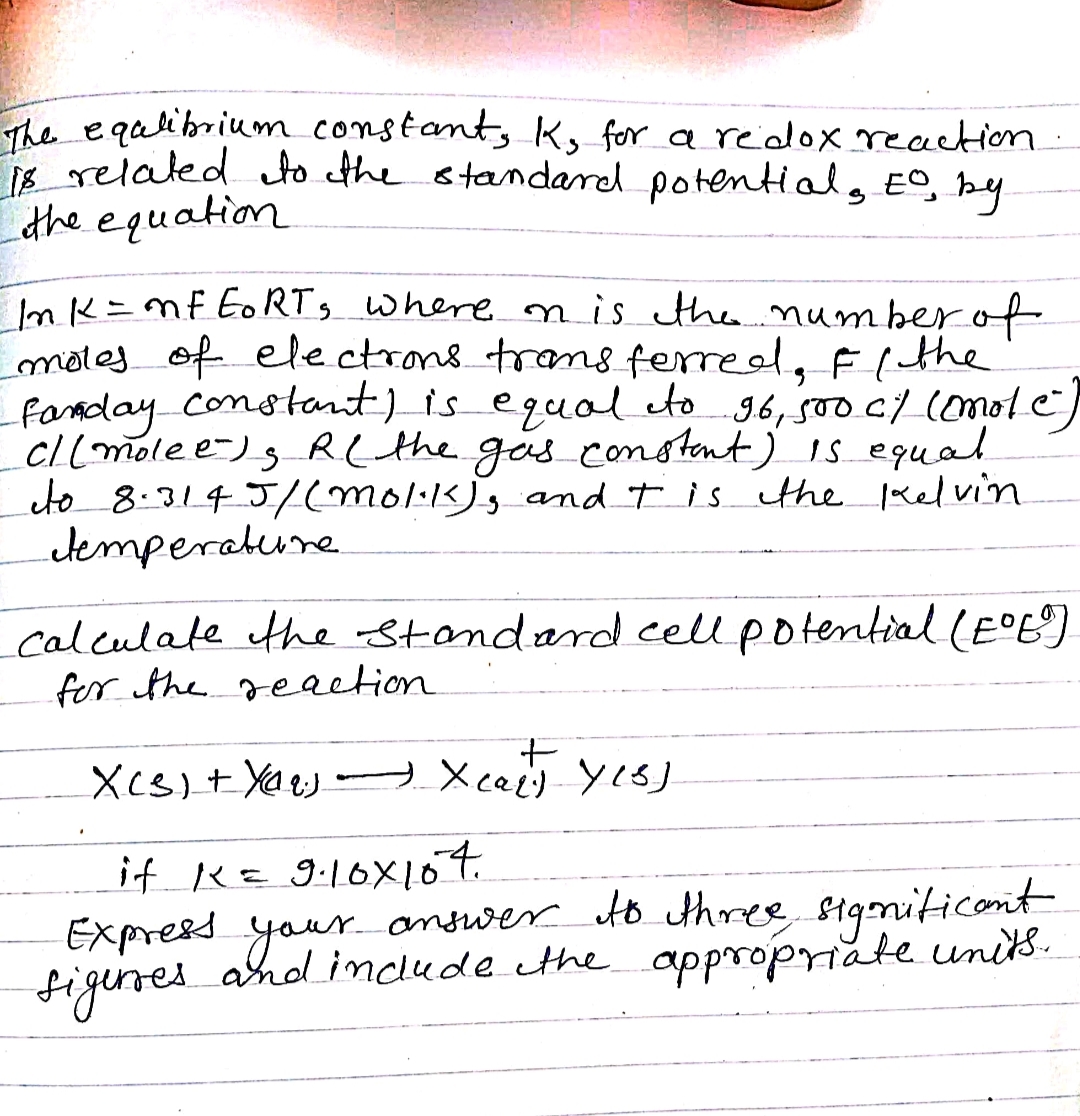 The eqalibrium constant, K, for a redox reaction
is related to the standard potential, E⁰, by
the equation
ln K = nF E₀RT, where n is the number of
moles of electrons transferred, F (the
faraday constant) is equal to 96,500 C/ (mol e⁻)
C/(mole e⁻), R (the gas constant) is equal
to 8.314 J/(mol.K), and T is the kelvin
temperature
calculate the standard cell potential (E⁰E⁰)
for the reaction
X(s) + Y(aq) → X(aq)⁺ Y(s)
if K = 9.10×10⁻⁴.
Express your answer to three significant
figures and include the appropriate units.